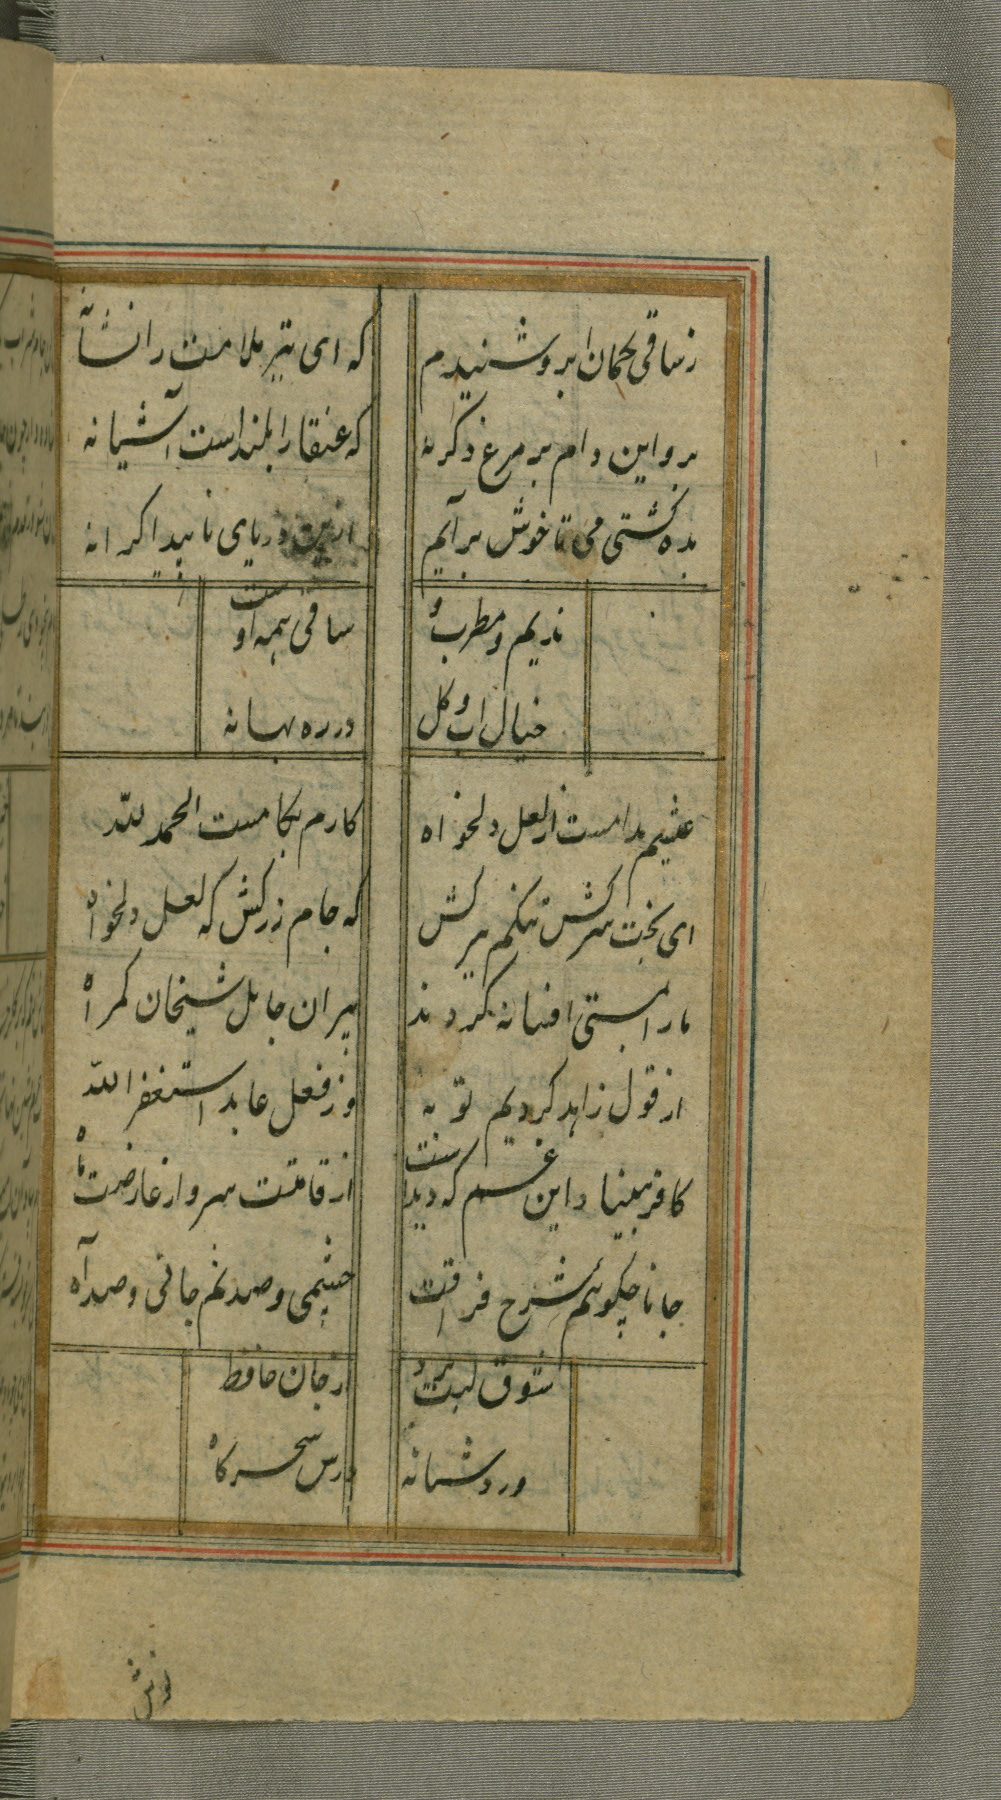 زساقی کمان ابرو شنیدم
که ای تیر ملامت را نشانه
برو این دام بر مرغ دگر نه
که عنقا را بلند است آشیانه
بده کشتی می تا خوش برآیم
ازین دریای ناپیدا کرانه
ندیم و مطرب و
ساقی همه اوست
خیال آب و گل
در ره بهانه
عیشم مدامست از لعل دلخواه
کارم بکامست الحمد لله
ای بخت سرکش تنگم ببر کش
که جام زرکش که لعل دلخواه
ما را بمستی افسانه کردند
پیران جاهل شیخان گمراه
از قول زاهد کردیم توبه
وز فعل عابد استغفر الله
کافر مبیناد این غم که دیدست
از قامتت سرو از عارضت ماه
جانا چگویم شرح فراقت
چشمی و صد نم جانی و صد آه
شوق لبت برد
از جان حافظ
ورد شبانه
درس سحرگاه